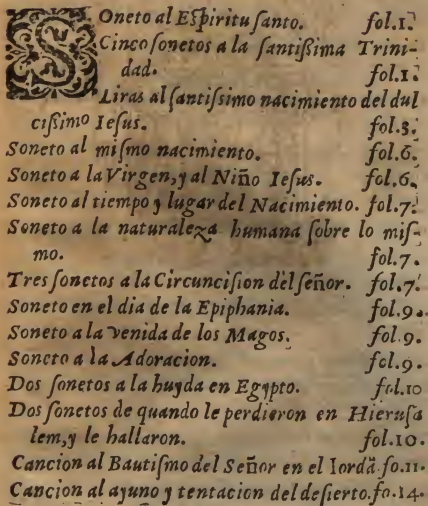 Soneto al Eſpiritu ſanto. fol.1.
Cinco ſonetos a la ſantiſsima Trini-
dad. fol.1.
Liras al ſantiſsimo nacimiento del dul
ciſsimo Ieſus. fol.3.
Soneto al miſmo nacimiento. fol.6.
Soneto a la Virgen, y al Niño Ieſus. fol.6.
Soneto al tiempo y lugar del Nacimiento. fol.7.
Soneto a la naturaleza humana ſobre lo miſ-
mo. fol.7.
Tres ſonetos a la Circunciſion del ſeñor. fol.7.
Soneto en el dia de la Epiphania. fol.9.
Soneto a la venida de los Magos. fol.9.
Soneto a la Adoracion. fol.9.
Dos ſonetos a la huyda en Egypto. fol.10
Dos ſonetos de quando le perdieron en Hieruſa
lem, y le hallaron. fol.10.
Cancion al Bautiſmo del Señor en el Iordã. fo.11.
Cancion al ayuno y tentacion del deſierto. fo.14.